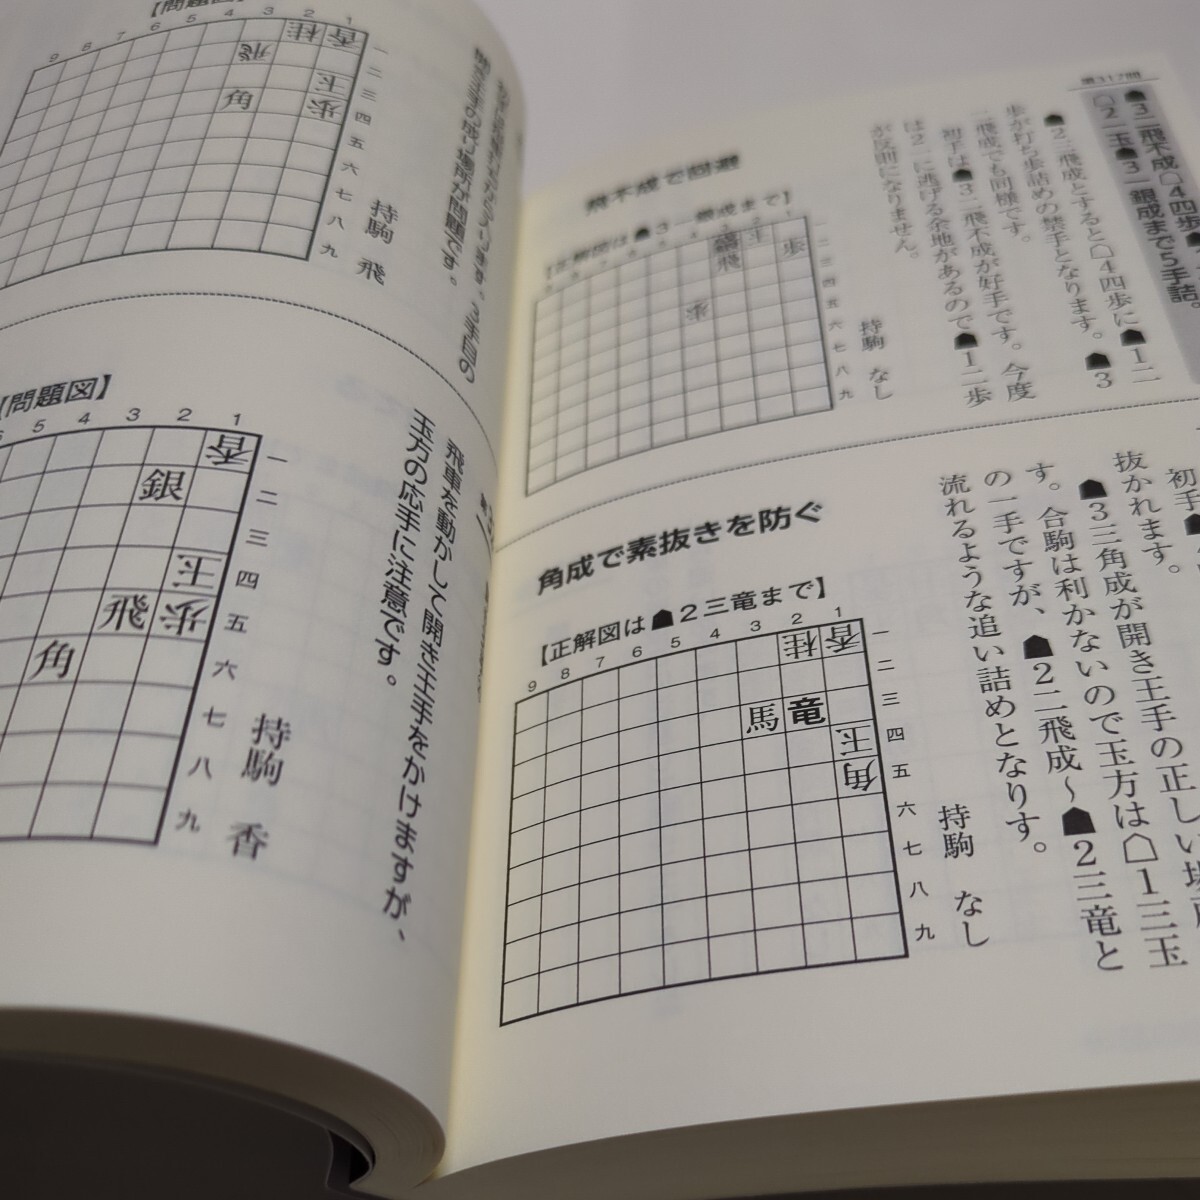 【問題図】
9 8 7 6 5 4 3 2 1
香
桂
飛
玉
歩
角
一
二
三
四
五
六
七
八
九
持駒 飛
開き王手の放り場所が問題です。
3手目の
【問題図】
5 4 3 2 1
香
銀
玉
歩
飛
角
一
二
三
四
五
六
七
八
九
持駒 香
飛車を動かして開き王手をかけますが、
玉方の応手に注意です。
第317問
☗3二飛不成☖4四歩☗
☖2一玉☗3一銀成まで5手詰。
☗2三飛成とすると☖4四歩に☗1二
歩が打ち歩詰めの禁手となります。☗3
二飛成でも同様です。
初手は☗3二飛不成が好手です。今度
は2一に逃げる余地があるので☗1二歩
が反則になりません。
飛不成で回避
【正解図は☗3一銀成まで】
玉
歩
飛
歩
一
二
三
四
五
六
七
八
九
持駒 なし
初手☗
抜かれます。
☗3三角成が開き王手の正しい場所
す。合駒は利かないので玉方は☖1三玉
の一手ですが、☗2二飛成〜☗2三竜と
流れるような追い詰めとなります。
角成で素抜きを防ぐ
【正解図は☗2三竜まで】
9 8 7 6 5 4 3 2 1
香
桂
竜
馬
玉
角
一
二
三
四
五
六
七
八
九
持駒 なし